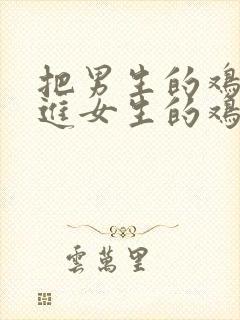 把男生的鸡
進女生的鸡
雲萬里